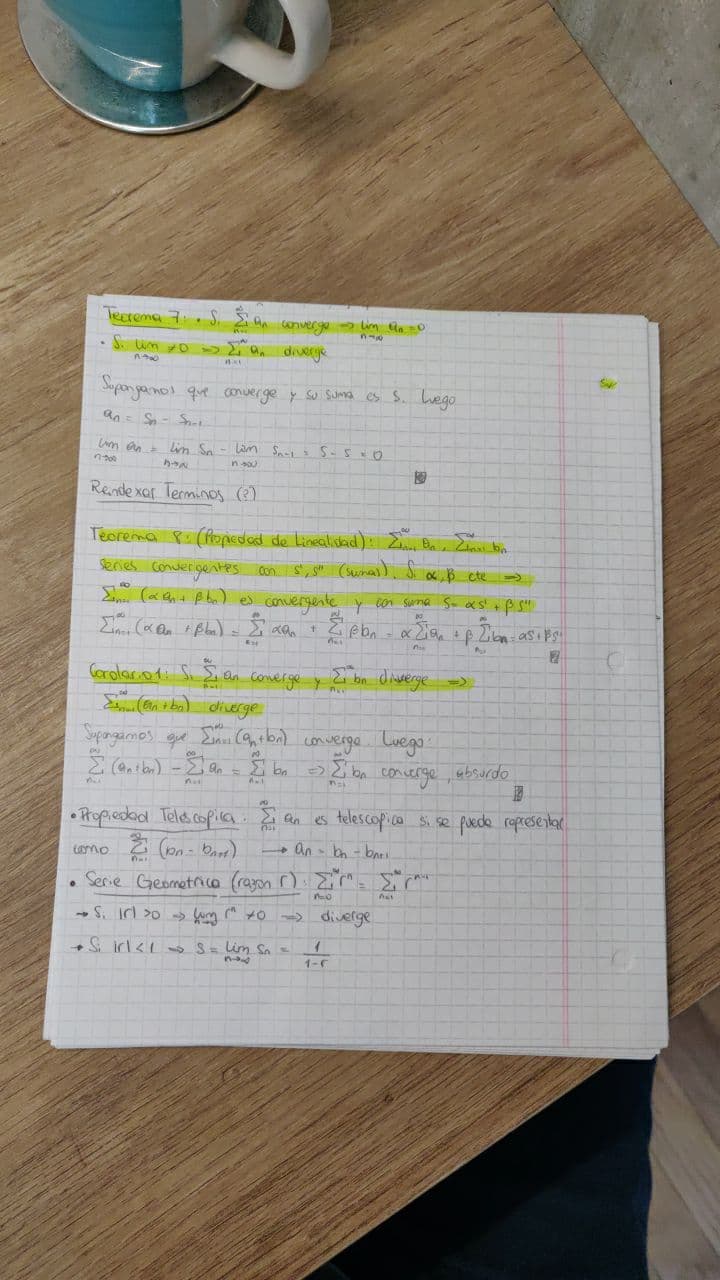 Teorema 7: • Si ∑_{n=1}^∞ an converge => lim_{n→∞} an = 0
• Si lim_{n→∞} ≠ 0 => ∑_{n=1}^∞ an diverge
Supongamos que converge y su suma es S. Luego
an = Sn - Sn-1
lim_{n→∞} an = lim_{n→∞} Sn - lim_{n→∞} Sn-1 = S - S = 0
Reindexar Terminos (?)
Teorema 8: (Propiedad de Linealidad): ∑_{n=1}^∞ an, ∑_{n=1}^∞ bn
series convergentes con s', s'' (sumas). Si α, β cte =>
∑_{n=1}^∞ (αan + βbn) es convergente y con suma S = αs' + βs''
∑_{n=1}^∞ (αan + βbn) = ∑_{n=1}^∞ αan + ∑_{n=1}^∞ βbn = α∑_{n=1}^∞ an + β∑_{n=1}^∞ bn = αs' + βs''
Corolario 1: Si ∑_{n=1}^∞ an converge y ∑_{n=1}^∞ bn diverge =>
∑_{n=1}^∞ (an + bn) diverge
Supongamos que ∑_{n=1}^∞ (an + bn) converge. Luego:
∑_{n=1}^∞ (an + bn) - ∑_{n=1}^∞ an = ∑_{n=1}^∞ bn => ∑_{n=1}^∞ bn converge, absurdo
• Propiedad Telescopica: ∑_{n=1}^∞ an es telescopica si se puede representar
como ∑_{n=1}^∞ (bn - bn+1) → an = bn - bn+1
• Serie Geometrica (razon r): ∑_{n=0}^∞ r^n = ∑_{n=1}^∞ r^{n-1}
→ Si |r| > 0 => lim_{n→∞} r^n ≠ 0 => diverge
→ Si |r| < 1 => S = lim_{n→∞} Sn = 1/(1-r)